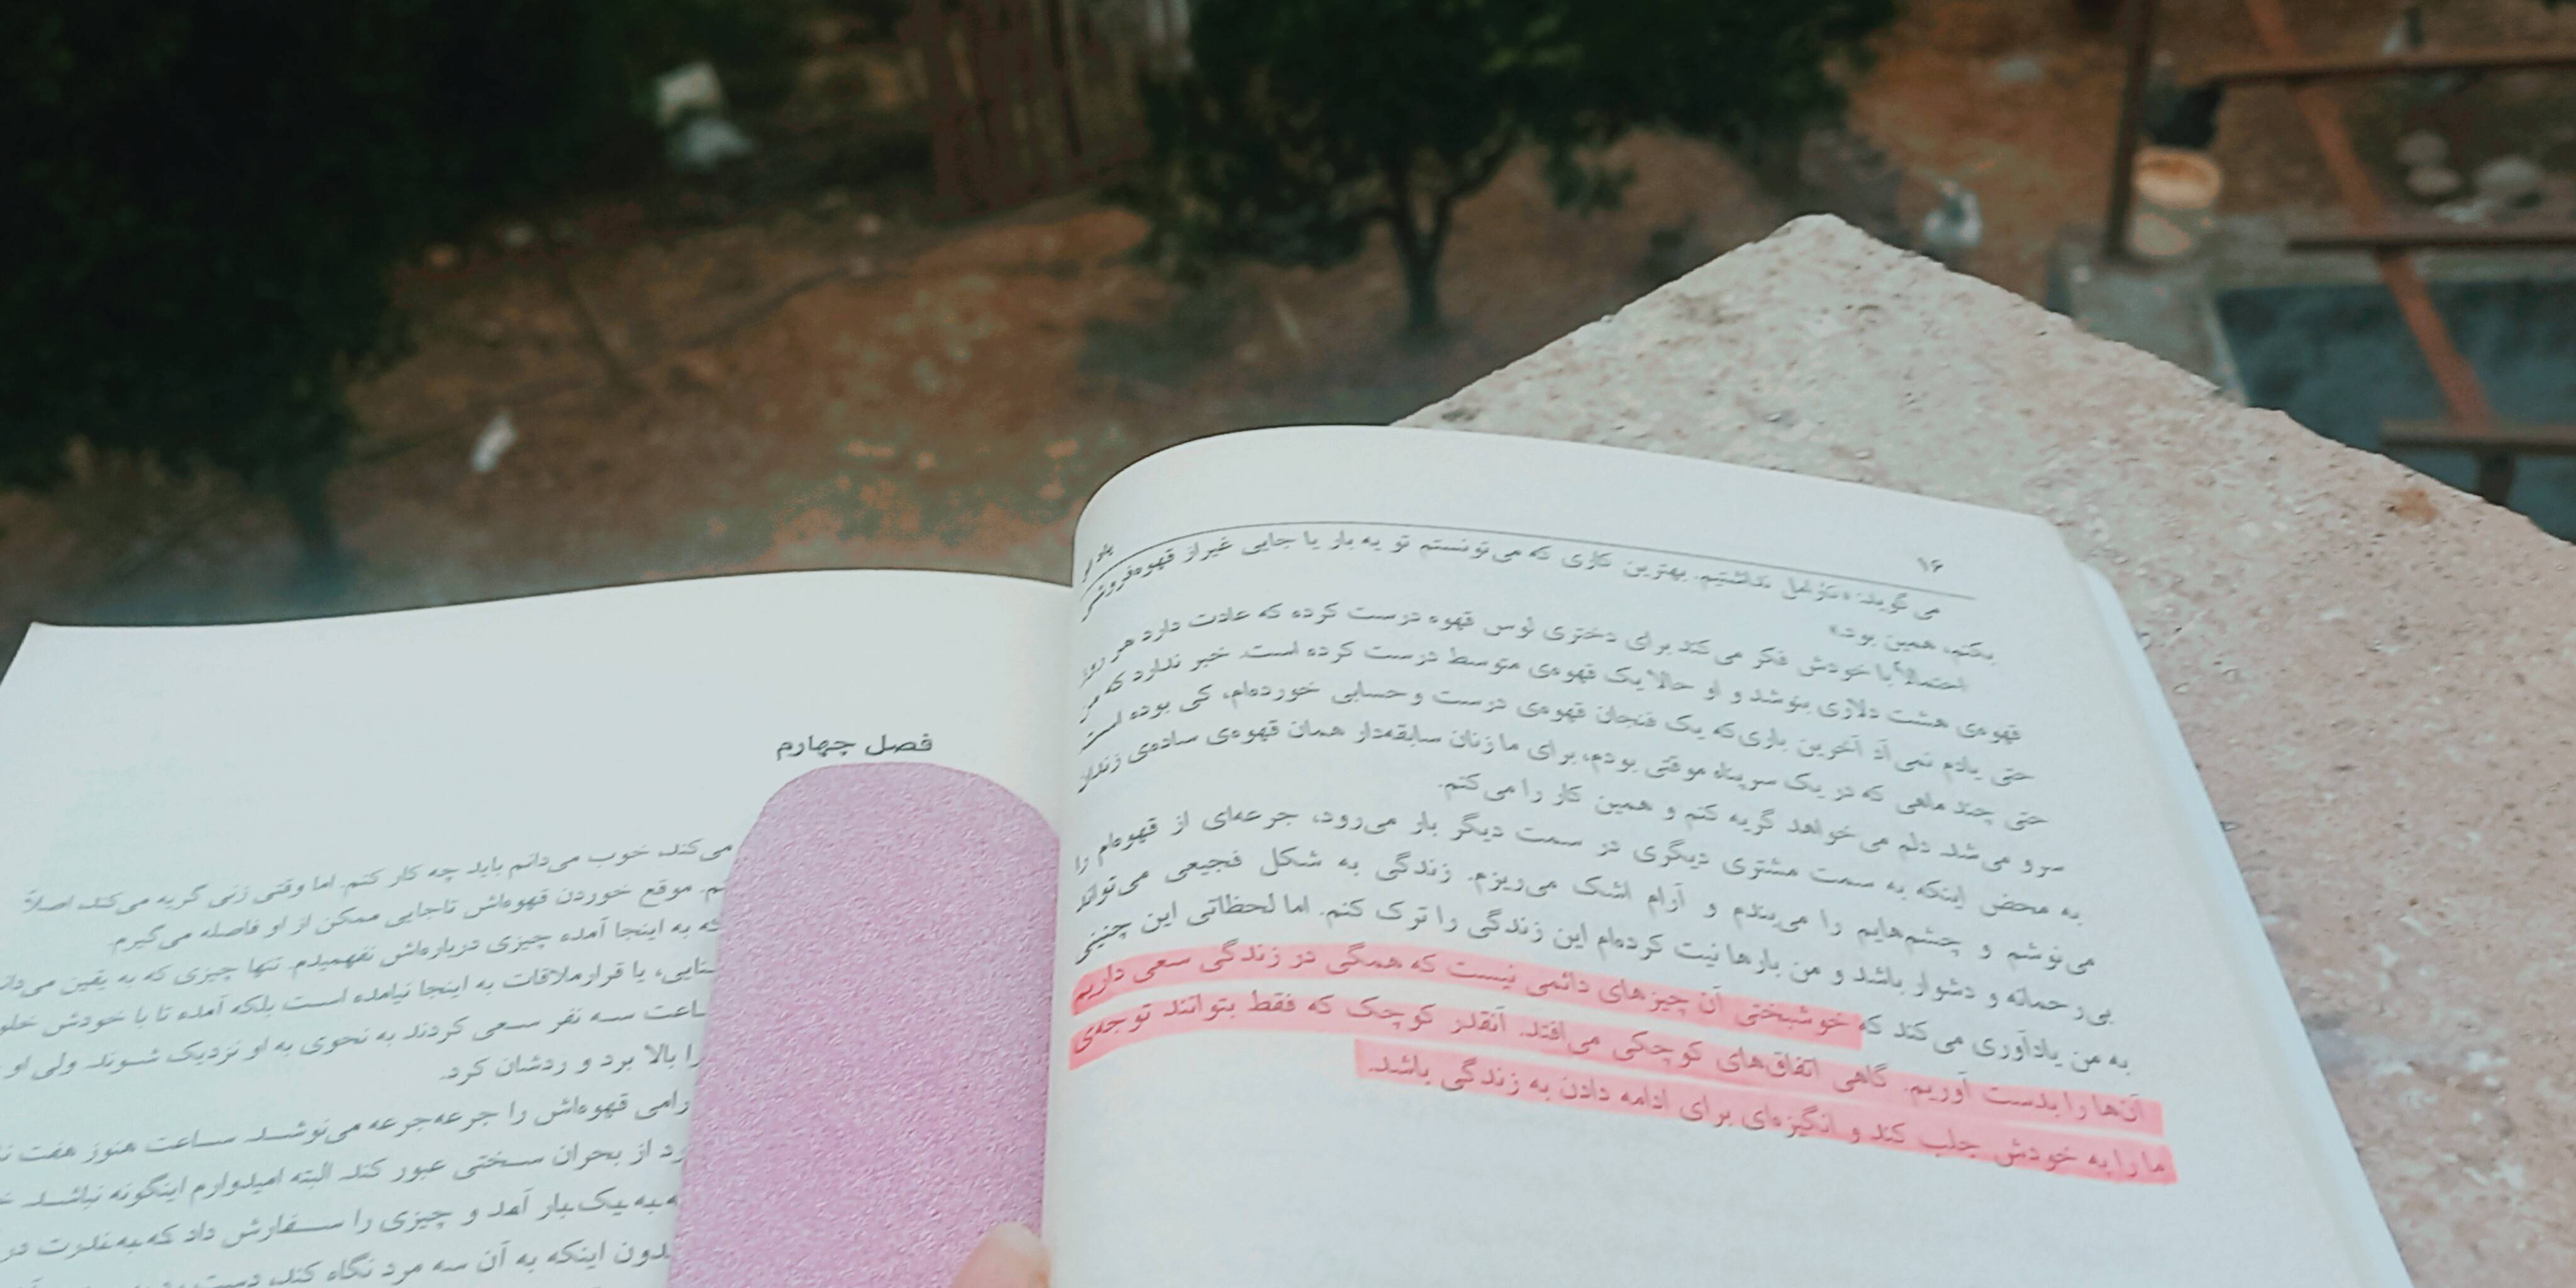 ۱۶
می گوید: «شغل نداشتیم. بهترین کاری که می‌تونستم تو یه بار یا جایی غیراز قهوه‌فروشی
بکنم، همین بود.»
احتمالاً با خودش فکر می‌کند برای دختری لوس قهوه درست کرده که عادت دارد هر روز
قهوه‌ی هشت دلاری بنوشد و او حالا یک قهوه‌ی متوسط درست کرده است. خبر ندارد که من
حتی یادم نمی‌آد آخرین باری‌که یک فنجان قهوه‌ی درست و حسابی خورده‌ام، کی بوده است
حتی چند ماهی که در یک سرپناه موقتی بودم، برای ما زنان سابقه‌دار همان قهوه‌ی ساده‌ی زندان
سرو می‌شد. دلم می‌خواهد گریه کنم و همین کار را می‌کنم.
به محض اینکه به سمت مشتری دیگری در سمت دیگر بار می‌رود، جرعه‌ای از قهوه‌ام را
می‌نوشم و چشم‌هایم را می‌بندم و آرام اشک می‌ریزم. زندگی به شکل فجیعی می‌تواند
بی‌رحمانه و دشوار باشد و من بارها نیت کرده‌ام این زندگی را ترک کنم. اما لحظاتی این چنینی
به من یادآوری می‌کند که خوشبختی آن چیزهای دائمی نیست که همگی در زندگی سعی داریم
آن‌ها را بدست آوریم. گاهی اتفاق‌های کوچکی می‌افتد. آنقدر کوچک که فقط بتوانند توجه‌ی
ما را به خودش جلب کند و انگیزه‌ای برای ادامه دادن به زندگی باشد.
فصل چهارم
می‌کند، خوب می‌دانم باید چه کار کنم. اما وقتی زنی گریه می‌کند، اصلاً
موقع خوردن قهوه‌اش تاجایی ممکن از او فاصله می‌گیرم.
که به اینجا آمده چیزی درباره‌اش نفهمیدم. تنها چیزی که به یقین می‌دانم
یا قرارملاقات به اینجا نیامده است بلکه آمده تا با خودش
ساعت سه نفر سعی کردند به نحوی به او نزدیک شوند. ولی او
را بالا برد و ردشان کرد.
قهوه‌اش را جرعه‌جرعه می‌نوشد. ساعت هنوز هفت
از بحران سختی عبور کند. البته امیدوارم اینگونه نباشد.
به یک‌بار آمد و چیزی را سفارش داد که به‌ندرت در
بدون اینکه به آن سه مرد نگاه کند، دست